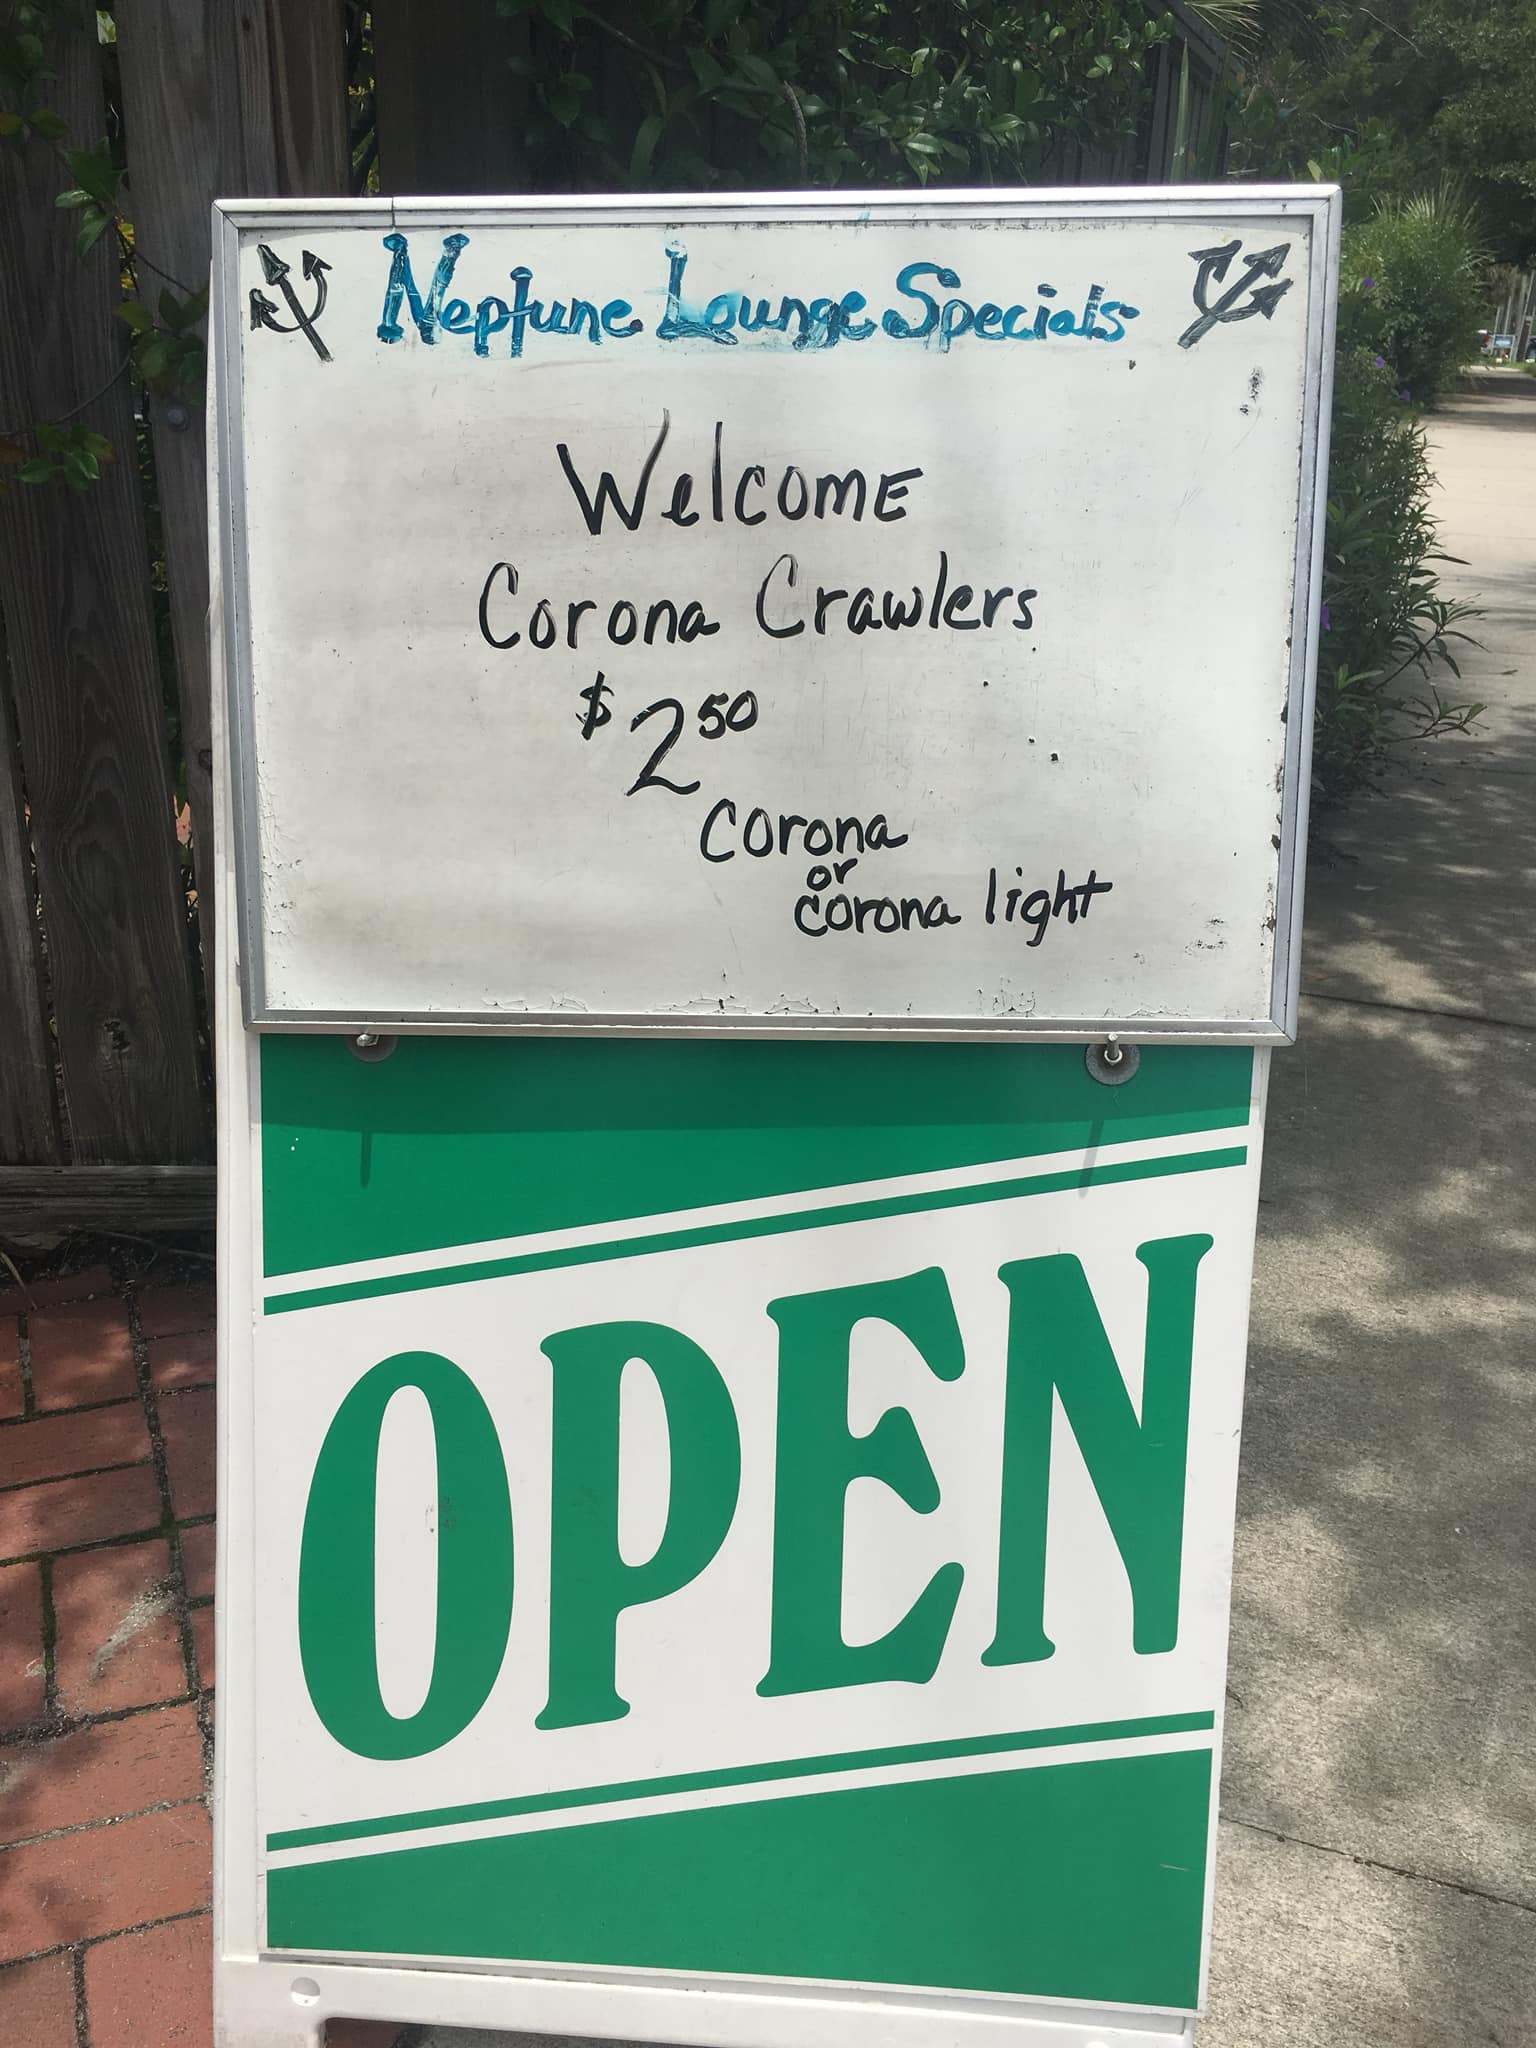 Neptune Lounge Specials
Welcome
Corona Crawlers
$2.50
Corona
or
corona light
OPEN